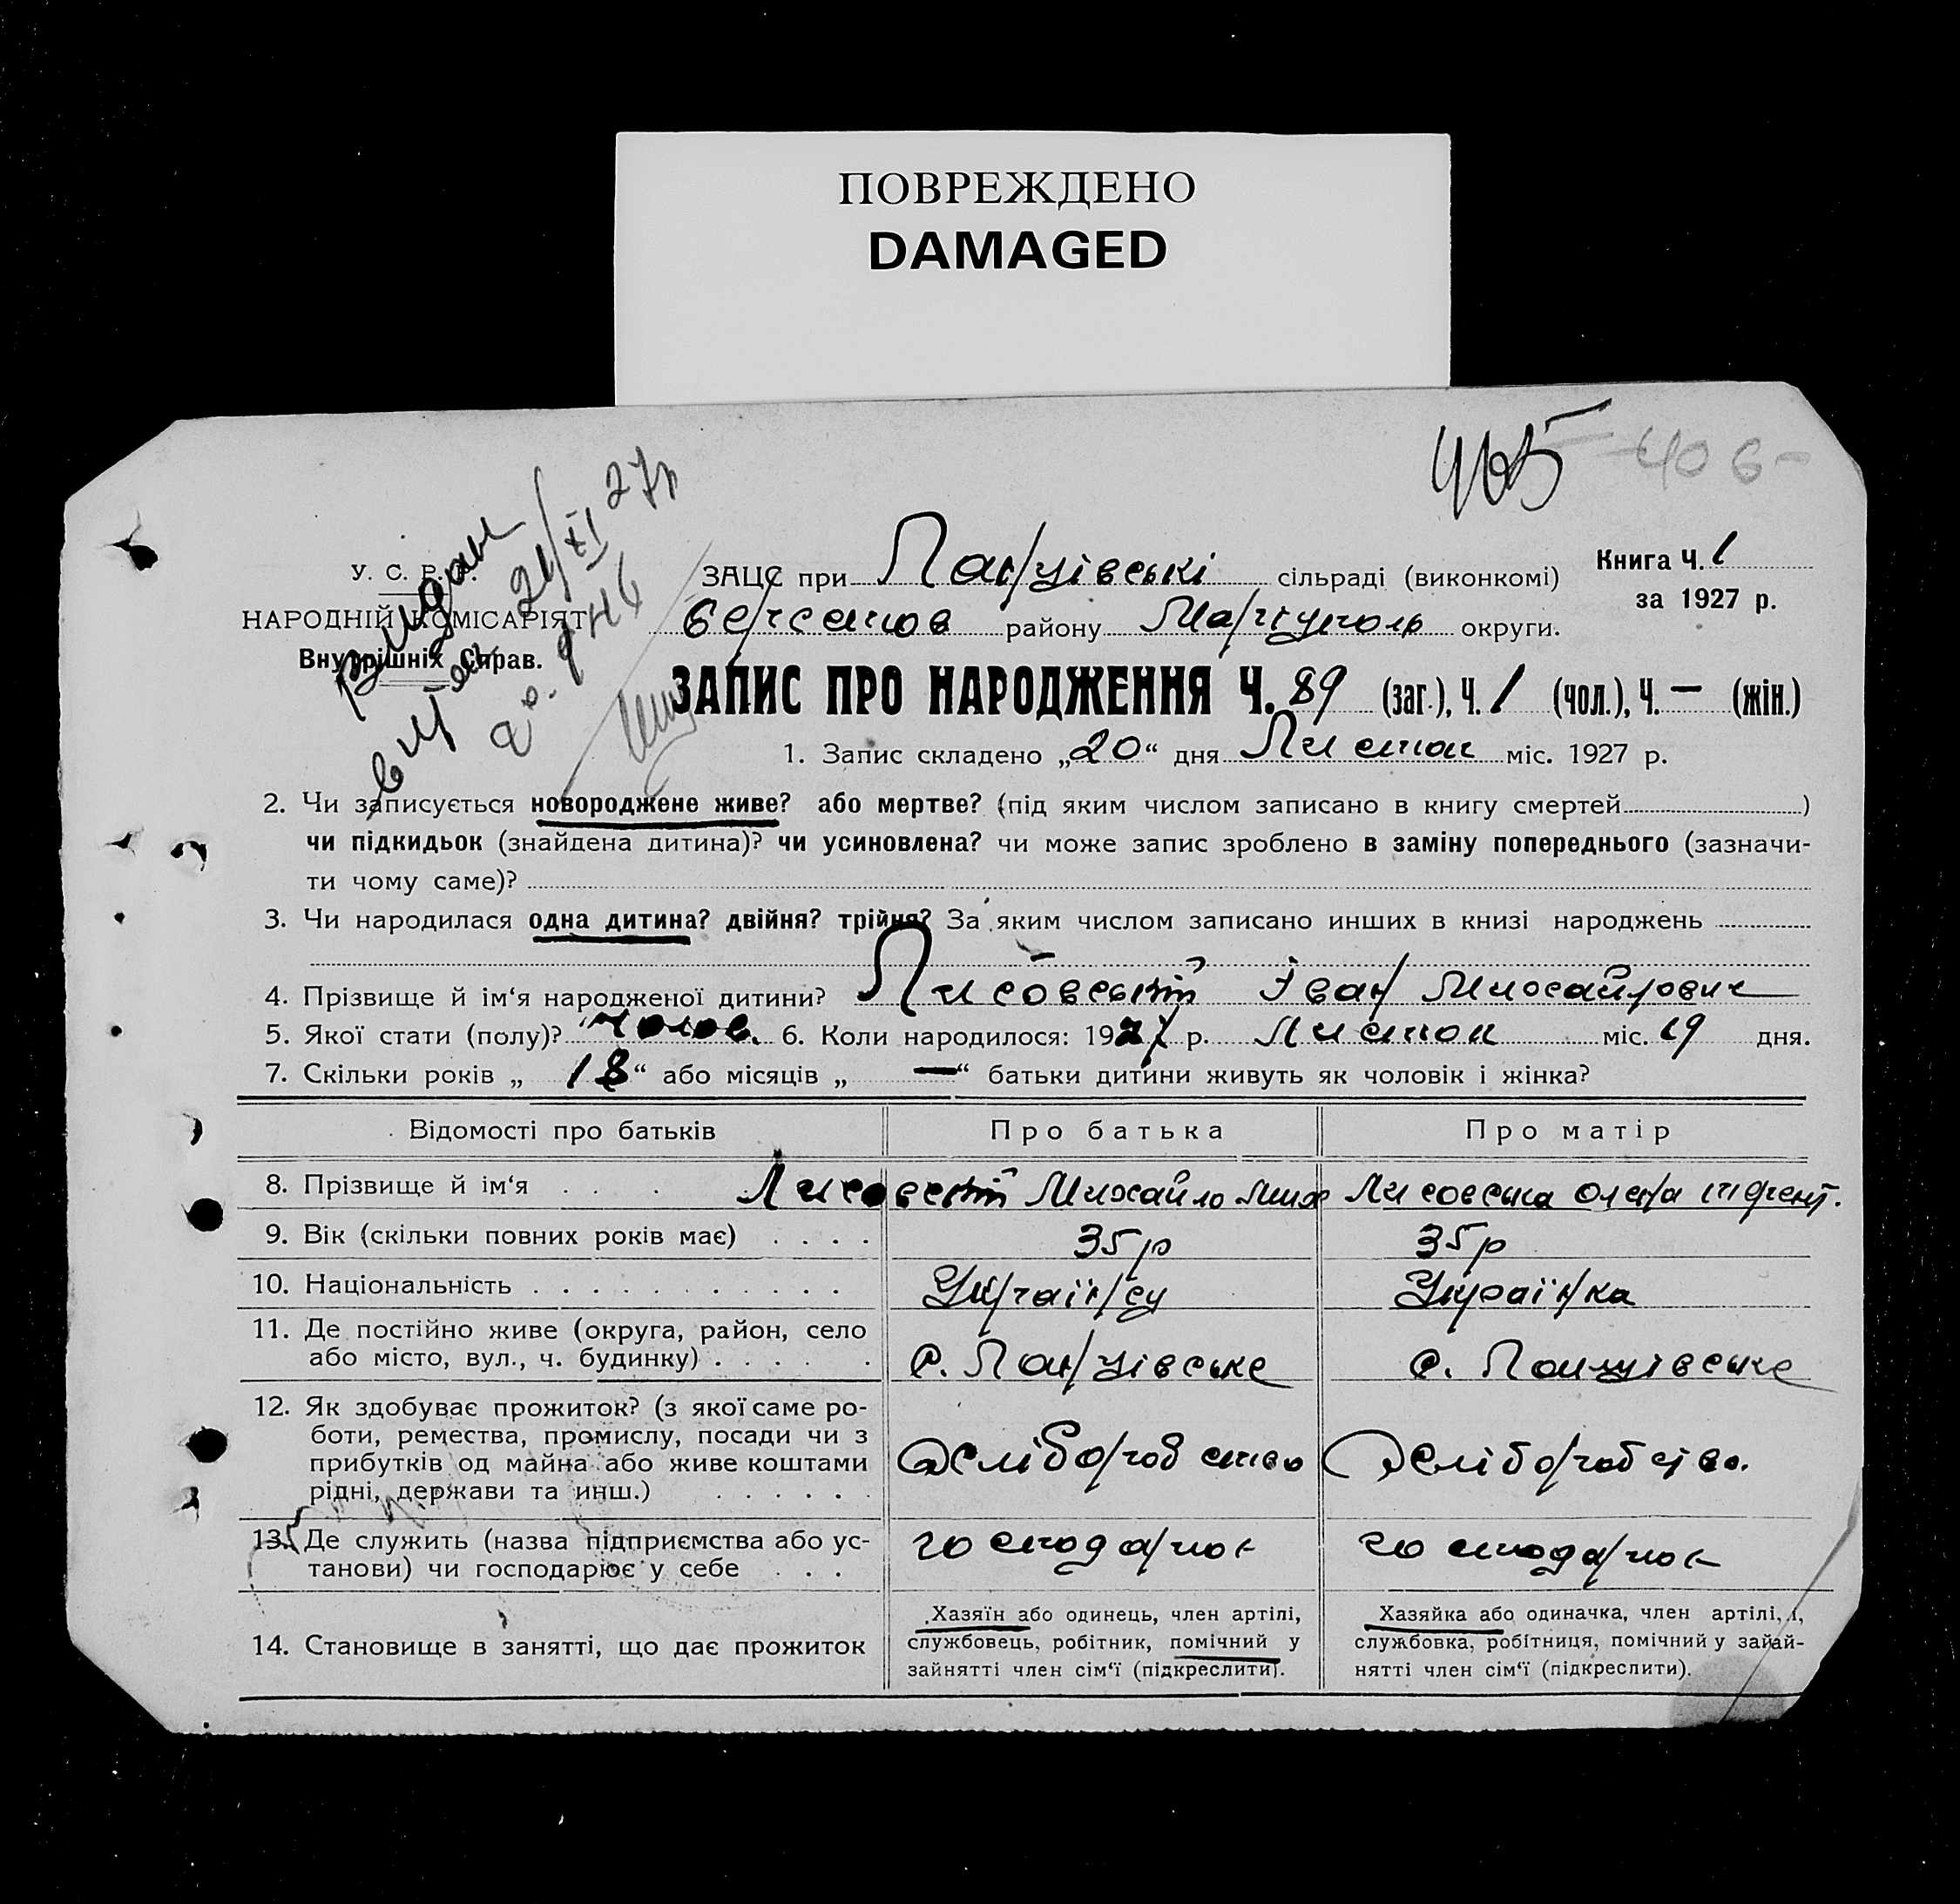 ПОВРЕЖДЕНО
DAMAGED
405 406-
видан
витяг 21/XI 27р
У. С. Р. Р.
НАРОДНІЙ КОМІСАРІЯТ
Внутрішніх Справ.
ЗАЦС при Панцівські сільраді (виконкомі)
району Маріуполь округи.
Книга Ч. 1
за 1927 р.
ЗАПИС ПРО НАРОДЖЕННЯ Ч. 89 (заг.), Ч. 1 (чол.), Ч. — (жін.)
1. Запис складено „20“ дня Листоп міс. 1927 р.
2. Чи записується новороджене живе? або мертве? (під яким числом записано в книгу смертей )
чи підкидьок (знайдена дитина)? чи усиновлена? чи може запис зроблено в заміну попереднього (зазначи-
ти чому саме)?
3. Чи народилася одна дитина? двійня? трійня? За яким числом записано инших в книзі народжень
4. Прізвище й ім‘я народженої дитини? Лисовський Іван Михайлович
5. Якої стати (полу)? Чолов. 6. Коли народилося: 1927 р. Листоп міс. 19 дня.
7. Скільки років „ 18 “ або місяців „ — “ батьки дитини живуть як чоловік і жінка?
Відомості про батьків Про батька Про матір
8. Прізвище й ім‘я . . . Лисовський Михайло Мих Лисовська Олена
9. Вік (скільки повних років має) . . . . 35 р 35 р
10. Національність . . . . . . . . . . . Українец Українка
11. Де постійно живе (округа, район, село
або місто, вул., ч. будинку) . . . . . с. Панцівське с. Панцівське
12. Як здобуває прожиток? (з якої саме ро-
боти, ремества, промислу, посади чи з
прибутків од майна або живе коштами
рідні, держави та инш.) . . . . . . Хліборобство Хліборобство.
13. Де служить (назва підприємства або ус-
танови) чи господарює у себе . . . господарює господарює
14. Становище в занятті, що дає прожиток
Хазяїн або одинець, член артілі,
службовець, робітник, помічний у
зайнятті член сім‘ї (підкреслити).
Хазяйка або одиначка, член артілі,
службовка, робітниця, помічний у зай-
нятті член сім‘ї (підкреслити).